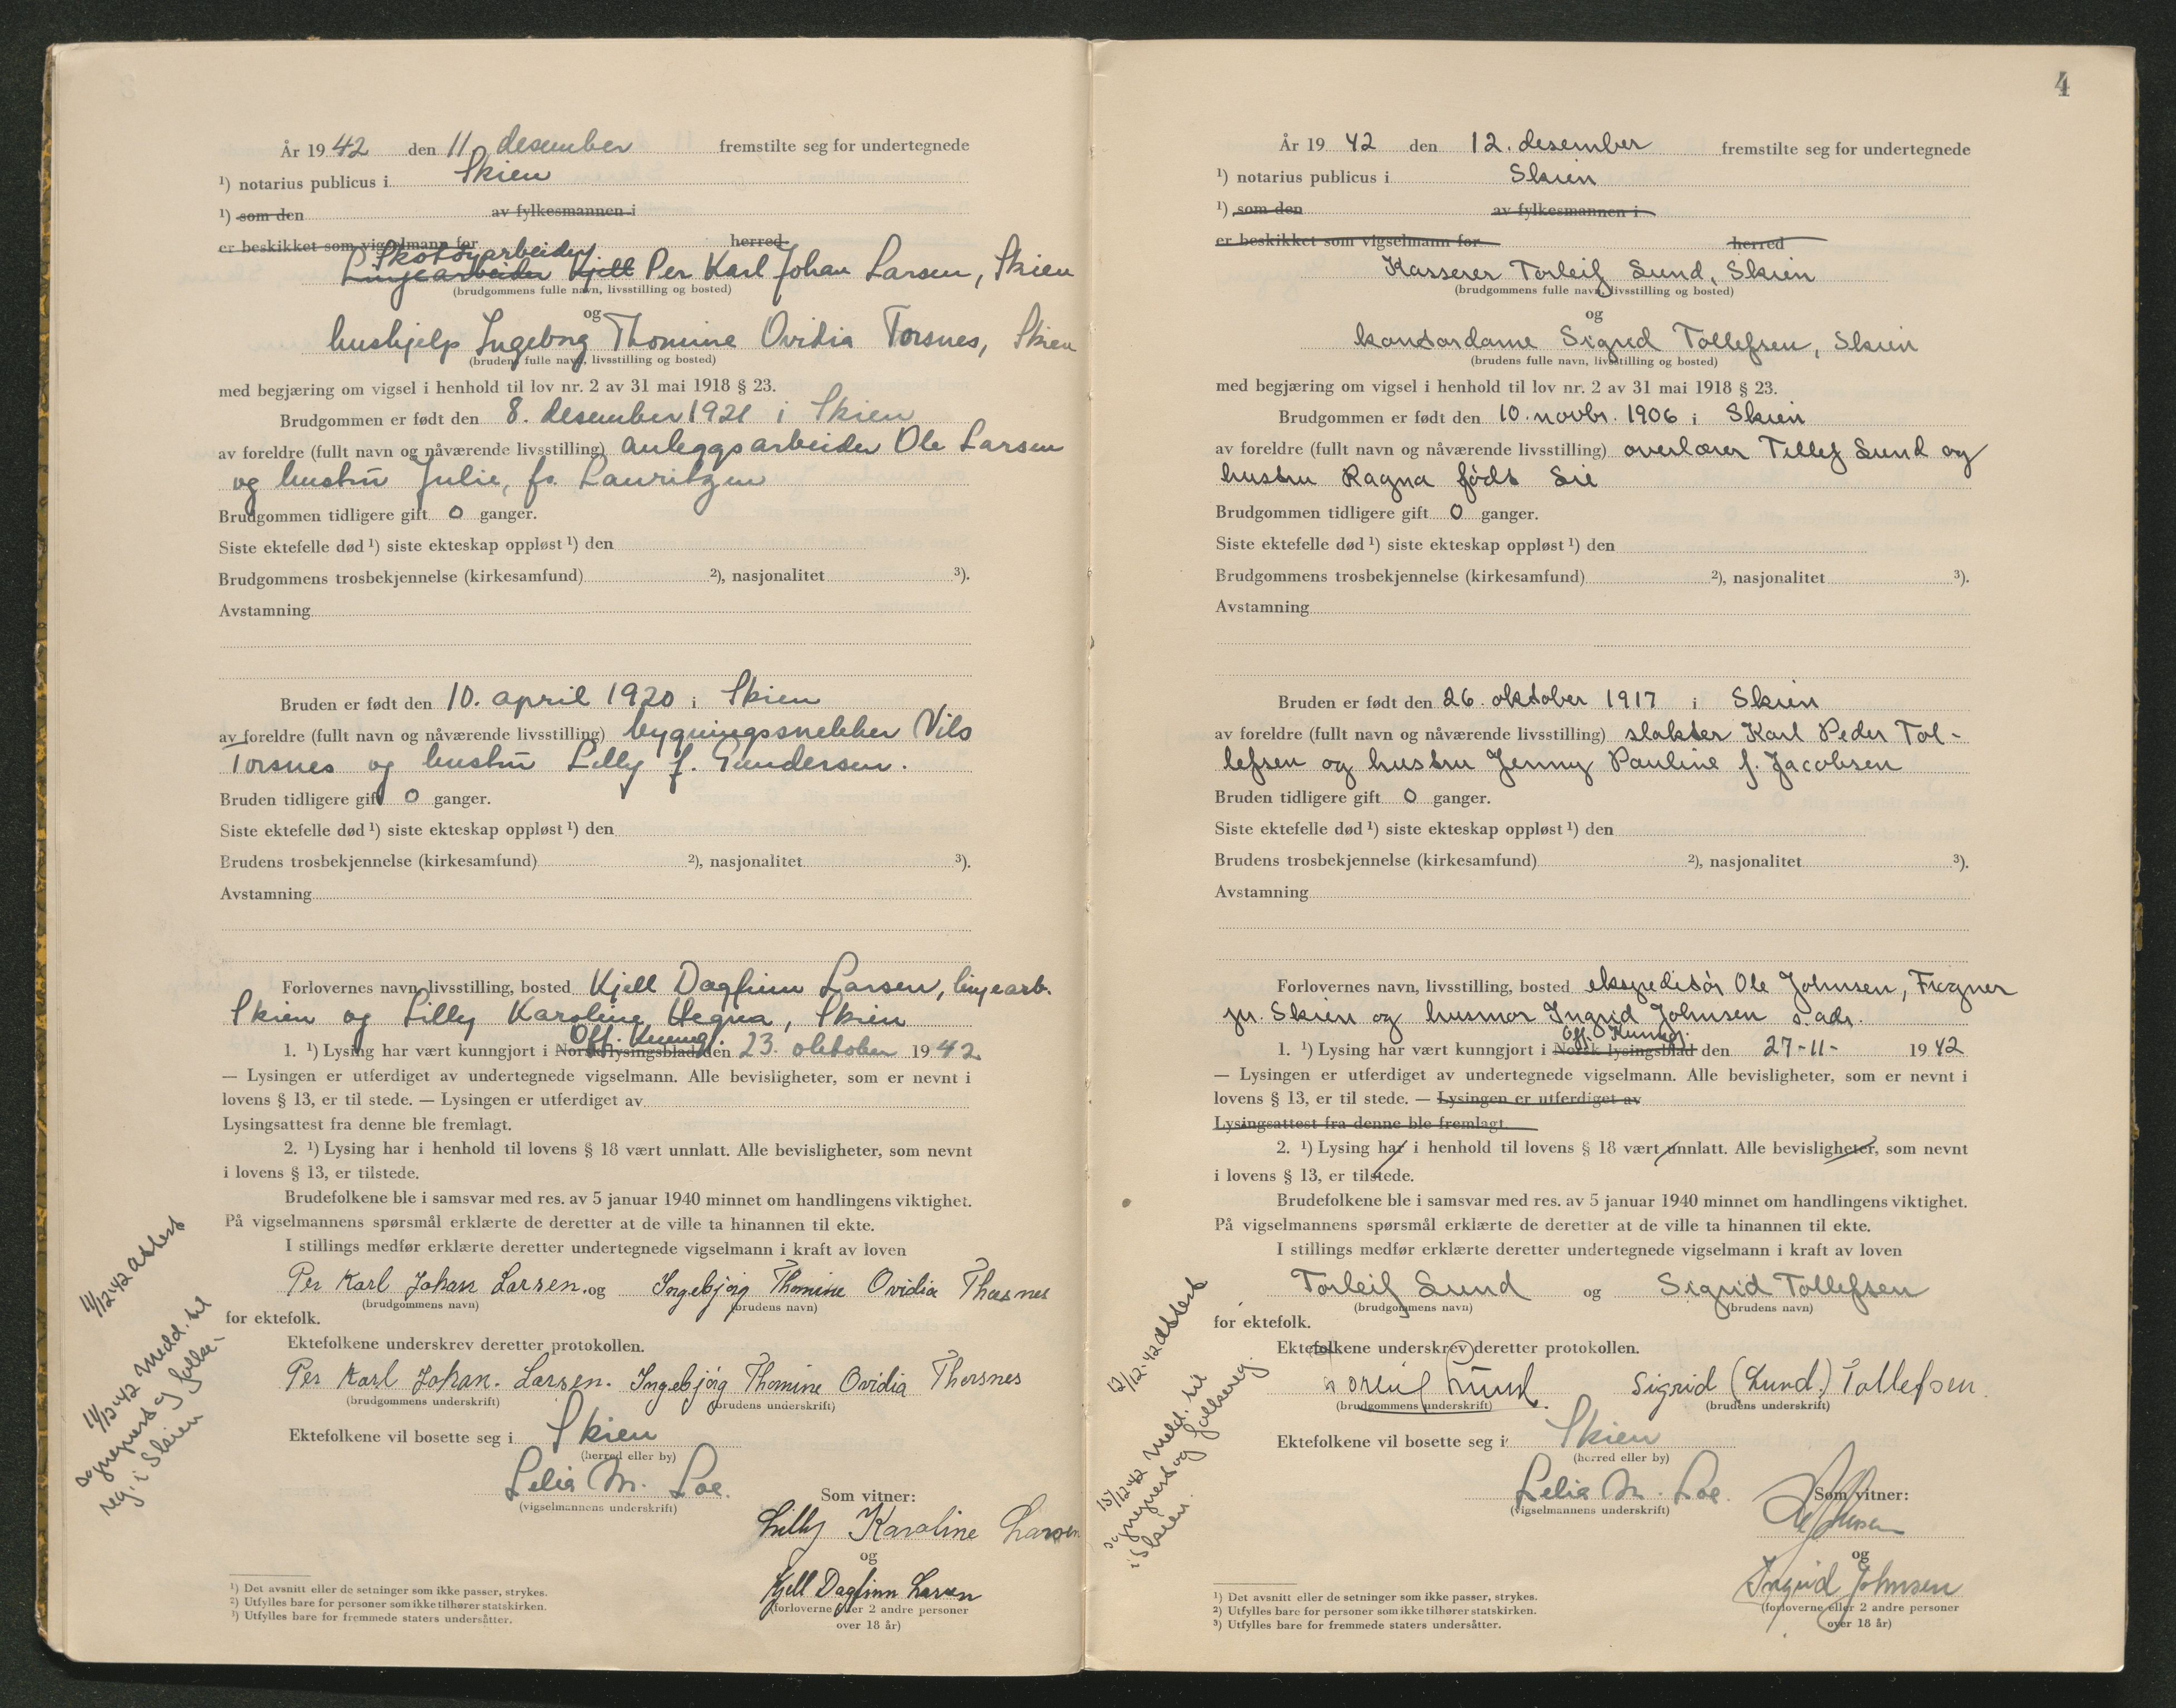 År 19 42 den 11 desember fremstilte seg for undertegnede
¹) notarius publicus i Skien
¹) som den av fylkesmannen i
er beskikket som vigselmann for herred
Skotøyarbeider
Linjearbeider Kjell Per Karl Johan Larsen, Skien
(brudgommens fulle navn, livsstilling og bosted)
og
hushjelp Ingeborg Thomine Ovidia Torsnes, Skien
(brudens fulle navn, livsstilling og bosted)
med begjæring om vigsel i henhold til lov nr. 2 av 31 mai 1918 § 23.
Brudgommen er født den 8. desember 1921 i Skien
av foreldre (fullt navn og nåværende livsstilling) anleggsarbeider Ole Larsen
og hustru Julie, f. Lauritzen
Brudgommen tidligere gift 0 ganger.
Siste ektefelle død ¹) siste ekteskap oppløst ¹) den
Brudgommens trosbekjennelse (kirkesamfund) ²), nasjonalitet ³).
Avstamning
Bruden er født den 10. april 1920 i Skien
av foreldre (fullt navn og nåværende livsstilling) bygningssnekker Nils
Torsnes og hustru Lilly f. Gundersen.
Bruden tidligere gift 0 ganger.
Siste ektefelle død ¹) siste ekteskap oppløst ¹) den
Brudens trosbekjennelse (kirkesamfund) ²), nasjonalitet ³).
Avstamning
Forlovernes navn, livsstilling, bosted Kjell Dagfinn Larsen, linjearb.
Skien og Lilly Karoline Hegna, Skien
Off. Kunngj.
1. ¹) Lysing har vært kunngjort i Norsk lysingsblad den 23. oktober 1942
— Lysingen er utferdiget av undertegnede vigselmann. Alle bevisligheter, som er nevnt i
lovens § 13, er til stede. — Lysingen er utferdiget av
Lysingsattest fra denne ble fremlagt.
2. ¹) Lysing har i henhold til lovens § 18 vært unnlatt. Alle bevisligheter, som nevnt
i lovens § 13, er tilstede.
Brudefolkene ble i samsvar med res. av 5 januar 1940 minnet om handlingens viktighet.
På vigselmannens spørsmål erklærte de deretter at de ville ta hinannen til ekte.
I stillings medfør erklærte deretter undertegnede vigselmann i kraft av loven
Per Karl Johan Larsen. og Ingebjørg Thomine Ovidia Thorsnes
(brudgommens navn) (brudens navn)
for ektefolk.
Ektefolkene underskrev deretter protokollen.
Per Karl Johan. Larsen. Ingebjørg Thomine Ovidia Thorsnes
(brudgommens underskrift) (brudens underskrift)
Ektefolkene vil bosette seg i Skien
(herred eller by)
Lelia M. Loe.
(vigselmannens underskrift)
Som vitner:
Lilly Karoline Larsen
og
Kjell Dagfinn Larsen
(forloverne eller 2 andre personer
over 18 år)
¹) Det avsnitt eller de setninger som ikke passer, strykes.
²) Utfylles bare for personer som ikke tilhører statskirken.
³) Utfylles bare for fremmede staters undersåtter.
11/12-42 attest
11/12-42 Medd. til
sogneprest og folke-
reg. i Skien
4
År 19 42 den 12. desember fremstilte seg for undertegnede
¹) notarius publicus i Skien
¹) som den av fylkesmannen i
er beskikket som vigselmann for herred
Kasserer Torleif Lund, Skien
(brudgommens fulle navn, livsstilling og bosted)
og
kontordame Sigrid Tollefsen, Skien
(brudens fulle navn, livsstilling og bosted)
med begjæring om vigsel i henhold til lov nr. 2 av 31 mai 1918 § 23.
Brudgommen er født den 10. novbr. 1906 i Skien
av foreldre (fullt navn og nåværende livsstilling) overlærer Tellef Lund og
hustru Ragna født Lie
Brudgommen tidligere gift 0 ganger.
Siste ektefelle død ¹) siste ekteskap oppløst ¹) den
Brudgommens trosbekjennelse (kirkesamfund) ²), nasjonalitet ³).
Avstamning
Bruden er født den 26. oktober 1917 i Skien
av foreldre (fullt navn og nåværende livsstilling) slakter Karl Peder Tol-
lefsen og hustru Jenny Pauline f. Jacobsen
Bruden tidligere gift 0 ganger.
Siste ektefelle død ¹) siste ekteskap oppløst ¹) den
Brudens trosbekjennelse (kirkesamfund) ²), nasjonalitet ³).
Avstamning
Forlovernes navn, livsstilling, bosted ekspeditør Ole Johnsen, Frogner
pr. Skien og husmor Ingrid Johnsen s. adr.
Off. Kunngj.
1. ¹) Lysing har vært kunngjort i Norsk lysingsblad den 27-11- 19 42
— Lysingen er utferdiget av undertegnede vigselmann. Alle bevisligheter, som er nevnt i
lovens § 13, er til stede. — Lysingen er utferdiget av
Lysingsattest fra denne ble fremlagt.
2. ¹) Lysing har i henhold til lovens § 18 vært unnlatt. Alle bevisligheter, som nevnt
i lovens § 13, er tilstede.
Brudefolkene ble i samsvar med res. av 5 januar 1940 minnet om handlingens viktighet.
På vigselmannens spørsmål erklærte de deretter at de ville ta hinannen til ekte.
I stillings medfør erklærte deretter undertegnede vigselmann i kraft av loven
Torleif Lund og Sigrid Tollefsen
(brudgommens navn) (brudens navn)
for ektefolk.
Ektefolkene underskrev deretter protokollen.
Torleif Lund. Sigrid (Lund) Tollefsen.
(brudgommens underskrift) (brudens underskrift)
Ektefolkene vil bosette seg i Skien
(herred eller by)
Lelia M. Loe.
(vigselmannens underskrift)
Som vitner:
Johnsen
og
Ingrid Johnsen
(forloverne eller 2 andre personer
over 18 år)
¹) Det avsnitt eller de setninger som ikke passer, strykes.
²) Utfylles bare for personer som ikke tilhører statskirken.
³) Utfylles bare for fremmede staters undersåtter.
12/12-42 attest
15/12-42 Meld. til
sogneprest og folkereg.
i Skien.